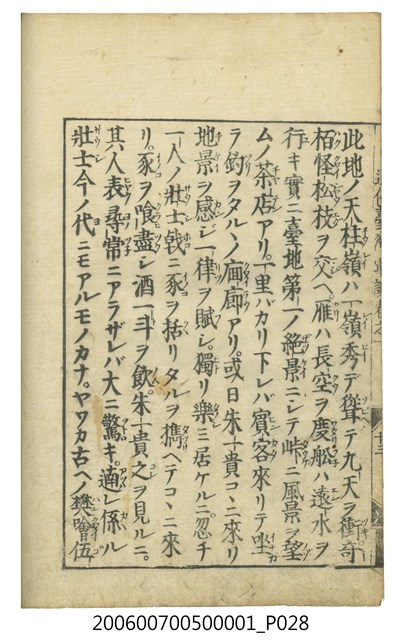 此地ノ天柱嶺ハ一嶺秀デ聳テ九天ヲ衝奇
栢怪松枝ヲ交ヘ雁ハ長空ヲ度舩ハ遠水ヲ
行キ實ニ臺地第一ノ絶景ニシテ峠ニ風景ヲ望
ムノ茶店アリ。一里バカリ下レバ賓客來リテ坐
ラ釣ヲタルヽノ廊アリ。或日朱一貴コヽニ來リ
地景ヲ感シ一律ヲ賦シ。獨リ樂ミ居ケルニ。忽チ
一人ノ壯士戟ニ豕ヲ括リタルヲ携ヘテコヽニ來
リ。豕ヲ喰盡シ酒一斗ヲ飲。朱一貴之ヲ見ルニ。
其人表尋常ニアラザレバ大ニ驚キ。適シ係ル
壯士今ノ代ニモアルモノカナ。ヤワカ古ヘノ樊噲伍
200600700500001_P028